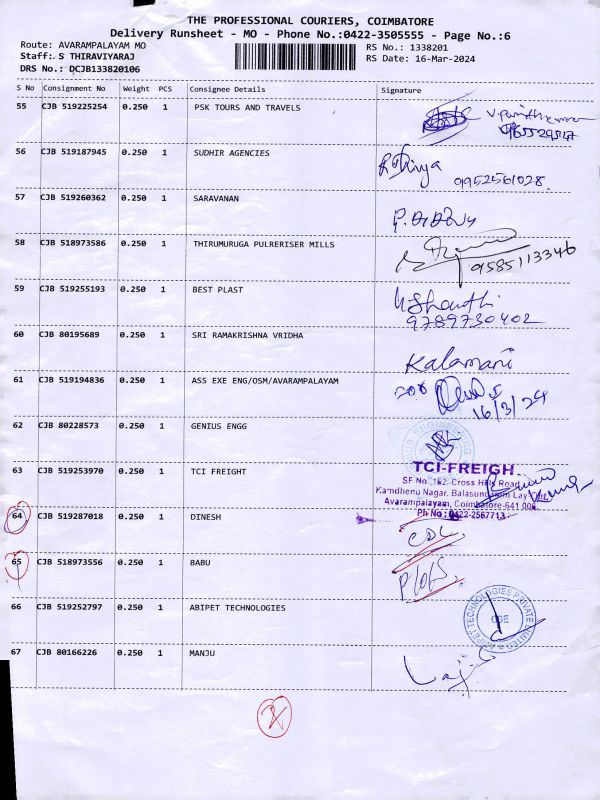 THE PROFESSIONAL COURIERS, COIMBATORE
Delivery Runsheet - MO - Phone No.:0422-3505555 - Page No.:6
Route: AVARAMPALAYAM MO
Staff: S THIRAVIYARAJ
DRS No.: DCJB133820106
RS No.: 1338201
RS Date: 16-Mar-2024
S No Consignment No Weight PCS Consignee Details Signature
55 CJB 519225254 0.250 1 PSK TOURS AND TRAVELS
56 CJB 519187945 0.250 1 SUDHIR AGENCIES
9952561028
57 CJB 519260362 0.250 1 SARAVANAN
58 CJB 518973586 0.250 1 THIRUMURUGA PULRERISER MILLS
9585113346
59 CJB 519255193 0.250 1 BEST PLAST
9789730402
60 CJB 80195689 0.250 1 SRI RAMAKRISHNA VRIDHA
Kalamani
61 CJB 519194836 0.250 1 ASS EXE ENG/OSM/AVARAMPALAYAM
16/3/24
62 CJB 80228573 0.250 1 GENIUS ENGG
63 CJB 519253970 0.250 1 TCI FREIGHT
TCI-FREIGH
SF No. 152, Cross Hills Road
Kamdhenu Nagar, Balasundaram Lay
Avarampalayam, Coimbatore-641 006
Ph No : 0422-2567713
64 CJB 519287018 0.250 1 DINESH
65 CJB 518973556 0.250 1 BABU
66 CJB 519252797 0.250 1 ABIPET TECHNOLOGIES
ABIPET TECHNOLOGIES PRIVATE LIMITED
CBE
67 CJB 80166226 0.250 1 MANJU